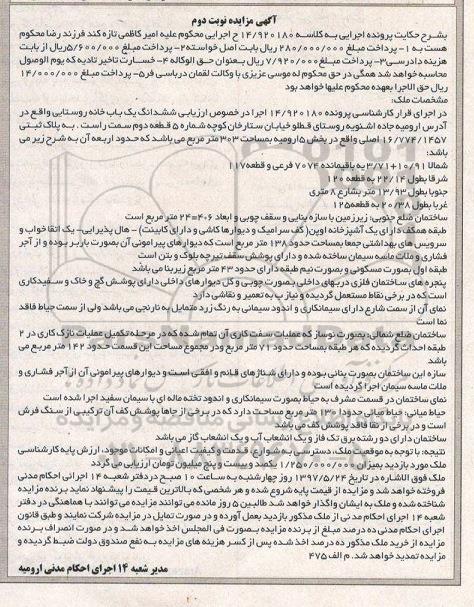 آگهی مزایده نوبت دوم
بشرح حکایت پرونده اجرایی به کلاسه ۱۴/۹۲۰۱۸۰ ح اجرایی محکوم علیه امیر کاظمی تازه کند فرزند رضا محکوم
هست به ۱- پرداخت مبلغ ۲۸۰/۰۰۰/۰۰۰ ریال بابت اصل خواسته ۲- پرداخت مبلغ ۵/۶۰۰/۰۰۰ ریال از بابت
هزینه دادرسی ۳- پرداخت مبلغ ۷/۹۲۰/۰۰۰ ریال بعنوان حق الوکاله ۴- خسارت تاخیر تادیه که یوم الوصول
محاسبه خواهد شد همگی در حق محکوم له موسی عزیزی با وکالت لقمان درباسی فر ۵- پرداخت مبلغ ۱۴/۰۰۰/۰۰۰
ریال حق الاجرا بعهده محکوم علیها خواهد بود
مشخصات ملک:
در اجرای قرار کارشناسی پرونده ۱۴/۹۲۰۱۸۰ اجرا در خصوص ارزیابی ششدانگ یک باب خانه روستایی واقع در
آدرس ارومیه جاده اشنویه روستای قطلو خیابان ستارخان کوچه شماره ۵ قطعه دوم سمت راست. به پلاک ثبتی
۱۶/۷۷۴/۱۴۵۷ اصلی واقع در بخش ۵ ارومیه بمساحت ۳۰۳ متر مربع می باشد که حدود اربعه آن به شرح زیر می
باشد:
شمالا ۳/۷۱+۱۰/۹۱ به باقیمانده ۷۰۷۴ فرعی و قطعه ۱۱۷
شرقا بطول ۲۲/۱۴ به قطعه ۱۲۰
جنوبا بطول ۱۳/۹۳ متر بشارع ۸ متری
غربا بطول ۲۰/۳۸ به قطعه ۱۲۵
ساختمان ضلع جنوبی: زیرزمین با سازه بنایی و سقف چوبی و ابعاد ۶*۴=۲۴ متر مربع است
طبقه همکف دارای یک آشپزخانه اوپن (کف سرامیک و دیوارها کاشی و دارای کابینت) - هال پذیرایی- یک اتاق خواب و
سرویس های بهداشتی جمعا بمساحت حدود ۱۳۸ متر مربع است که دیوارهای پیرامونی آن بصورت باربر بوده و از آجر
فشاری و ملات ماسه سیمان ساخته شده و دارای پوشش سقف تیرچه بلوک و بتن است
طبقه اول بصورت مسکونی و بصورت نیم طبقه دارای حدود ۴۳ متر مربع زیربنا می باشد
پنجره های ساختمان فلزی دربهای داخلی بصورت چوبی و کل دیوارهای داخلی دارای پوشش گچ و خاک و سفیدکاری
است که در برخی نقاط مستعمل گردیده و نیاز به تعمیر و نقاشی دارد
نمای آن از سمت شارع دارای سیمانکاری و اندود سیمانی به رنگ زرد متمایل به نارنجی می باشد ولی از سمت حیاط فاقد
نما است
ساختمان ضلع شمالی: بصورت نوساز که عملیات سفت کاری آن تمام شده که در مرحله تکمیل عملیات نازک کاری در ۲
طبقه احداث گردیده که هر طبقه بمساحت حدود ۷۱ متر مربع و در مجموع مساحت این قسمت حدود ۱۴۲ متر مربع می
باشد
سازه این ساختمان بصورت بنایی بوده و دارای شناژهای قائم و افقی است و دیوارهای پیرامونی آن از آجر فشاری و
ملات ماسه سیمان اجرا گردیده است
نمای ساختمان در قسمت مشرف به حیاط بصورت سیمانکاری و اندود تخته ماله ای با سیمان سفید اجرا شده است
حیاط میانی: حیاط میانی حدود ۱۳۶ متر مربع مساحت دارد که در برخی از جاها پوشش کف آن ترکیبی از سنگ فرش
است و در برخی از نقاط فاقد پوشش کف می باشد
ساختمان دارای دو رشته برق تک فاز و یک انشعاب آب و یک انشعاب گاز می باشد
نتیجه: با توجه به موقعیت ملک، دسترسی به شوارع، قدمت و کیفیت اعیانی و امکانات موجود، ارزش پایه کارشناسی
ملک مورد بازدید بمیزان ۱/۲۵۰/۰۰۰/۰۰۰ یکصد و بیست و پنج میلیون تومان ارزیابی می گردد
ملک فوق الاشاره در تاریخ ۱۳۹۷/۵/۲۴ روز چهارشنبه به ساعت ۱۰ صبح در دفتر شعبه ۱۴ اجرای احکام مدنی
فروخته خواهد شد و مزایده از قیمت پایه شروع شده و هر شخصی که بالاترین قیمت را پیشنهاد نماید برنده مزایده
شناخته شده و ملک به ایشان واگذار خواهد شد طالبین ۵ روز مانده می توانند مزایده می توانند با هماهنگی در دفتر
شعبه ۱۴ اجرای احکام مدنی از ملک مذکور بازدید بعمل آورده و در صورت تمایل در مزایده شرکت نمایند و طبق قانون
اجرای احکام مدنی ده درصد مبلغ از برنده مزایده بصورت فی المجلس اخذ خواهد شد و در صورت انصراف برنده
مزایده از خرید ملک مذکور ده درصد اخذ شده پس از کسر هزینه های مزایده به نفع صندوق دولت ضبط گردیده و
مزایده تمدید خواهد شد. م الف ۴۷۵
مدیر شعبه ۱۴ اجرای احکام مدنی ارومیه